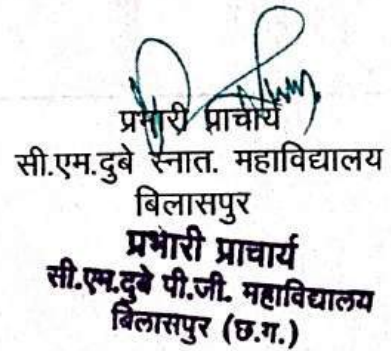 प्रभारी प्राचार्य
सी.एम.दुबे स्नात. महाविद्यालय
बिलासपुर
प्रभारी प्राचार्य
सी.एम.दुबे पी.जी. महाविद्यालय
बिलासपुर (छ.ग.)